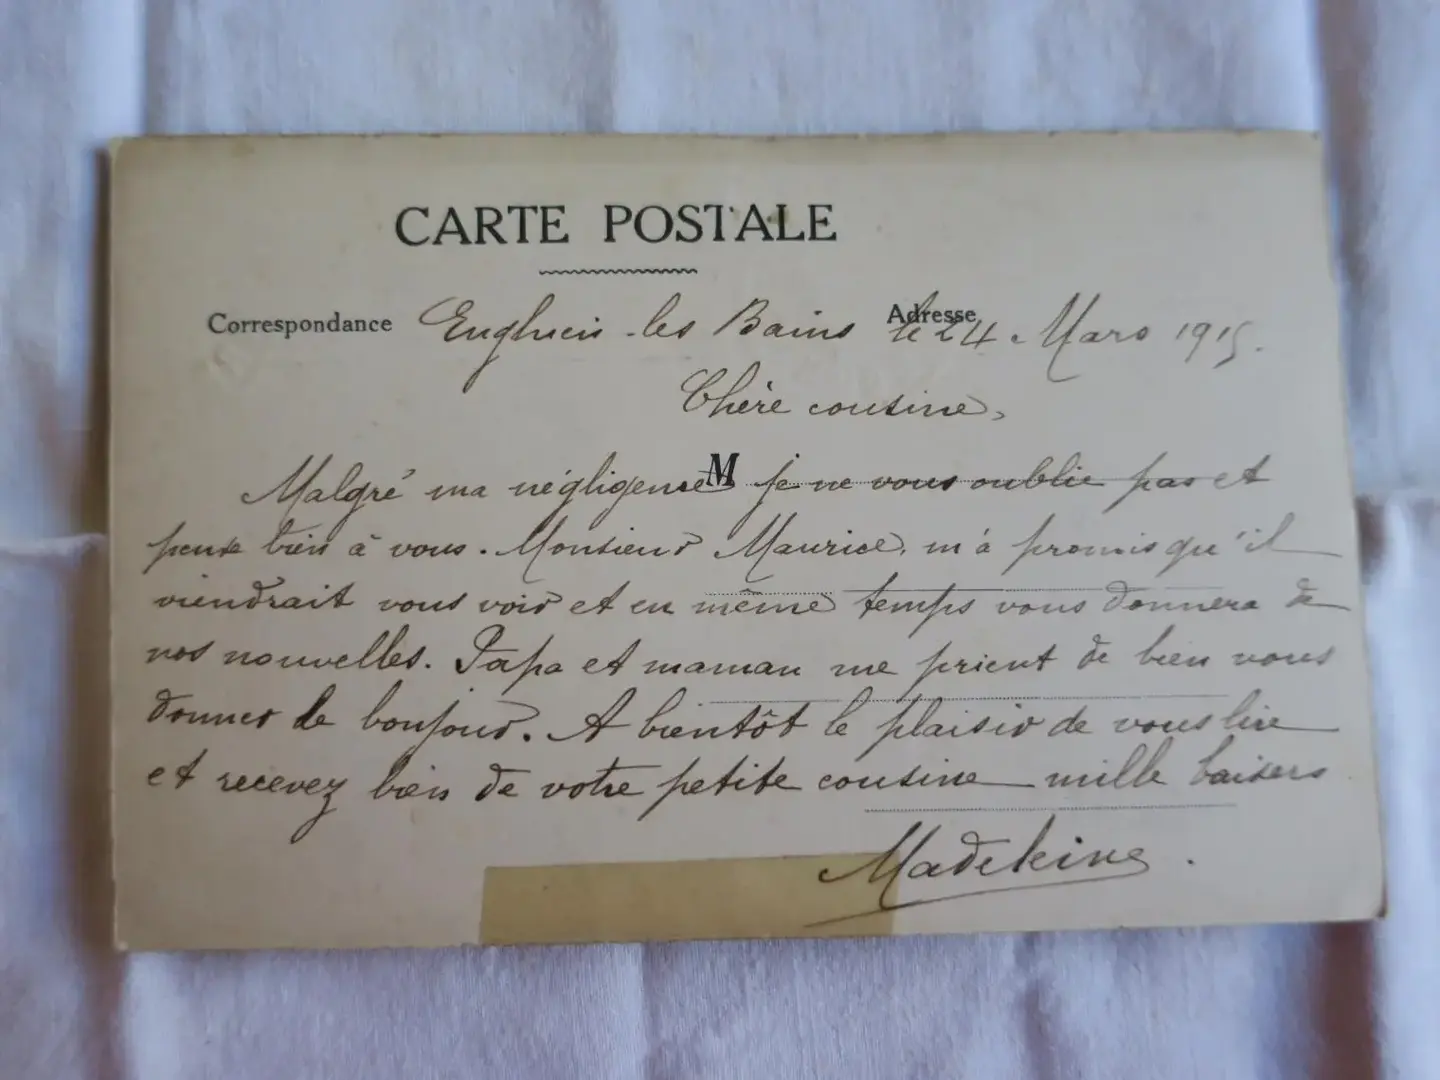 CARTE POSTALE
Correspondance Enghien-les Bains Adresse le 24 Mars 1915.
Chère cousine,
Malgré ma négligence M je ne vous oublie pas et
pense bien à vous. Monsieur Maurice, m'a promis qu'il
viendrait vous voir et en même temps vous donnera de
nos nouvelles. Papa et maman me prient de bien vous
donner le bonjour. A bientôt le plaisir de vous lire
et recevez bien de votre petite cousine mille baisers
Madeleine.